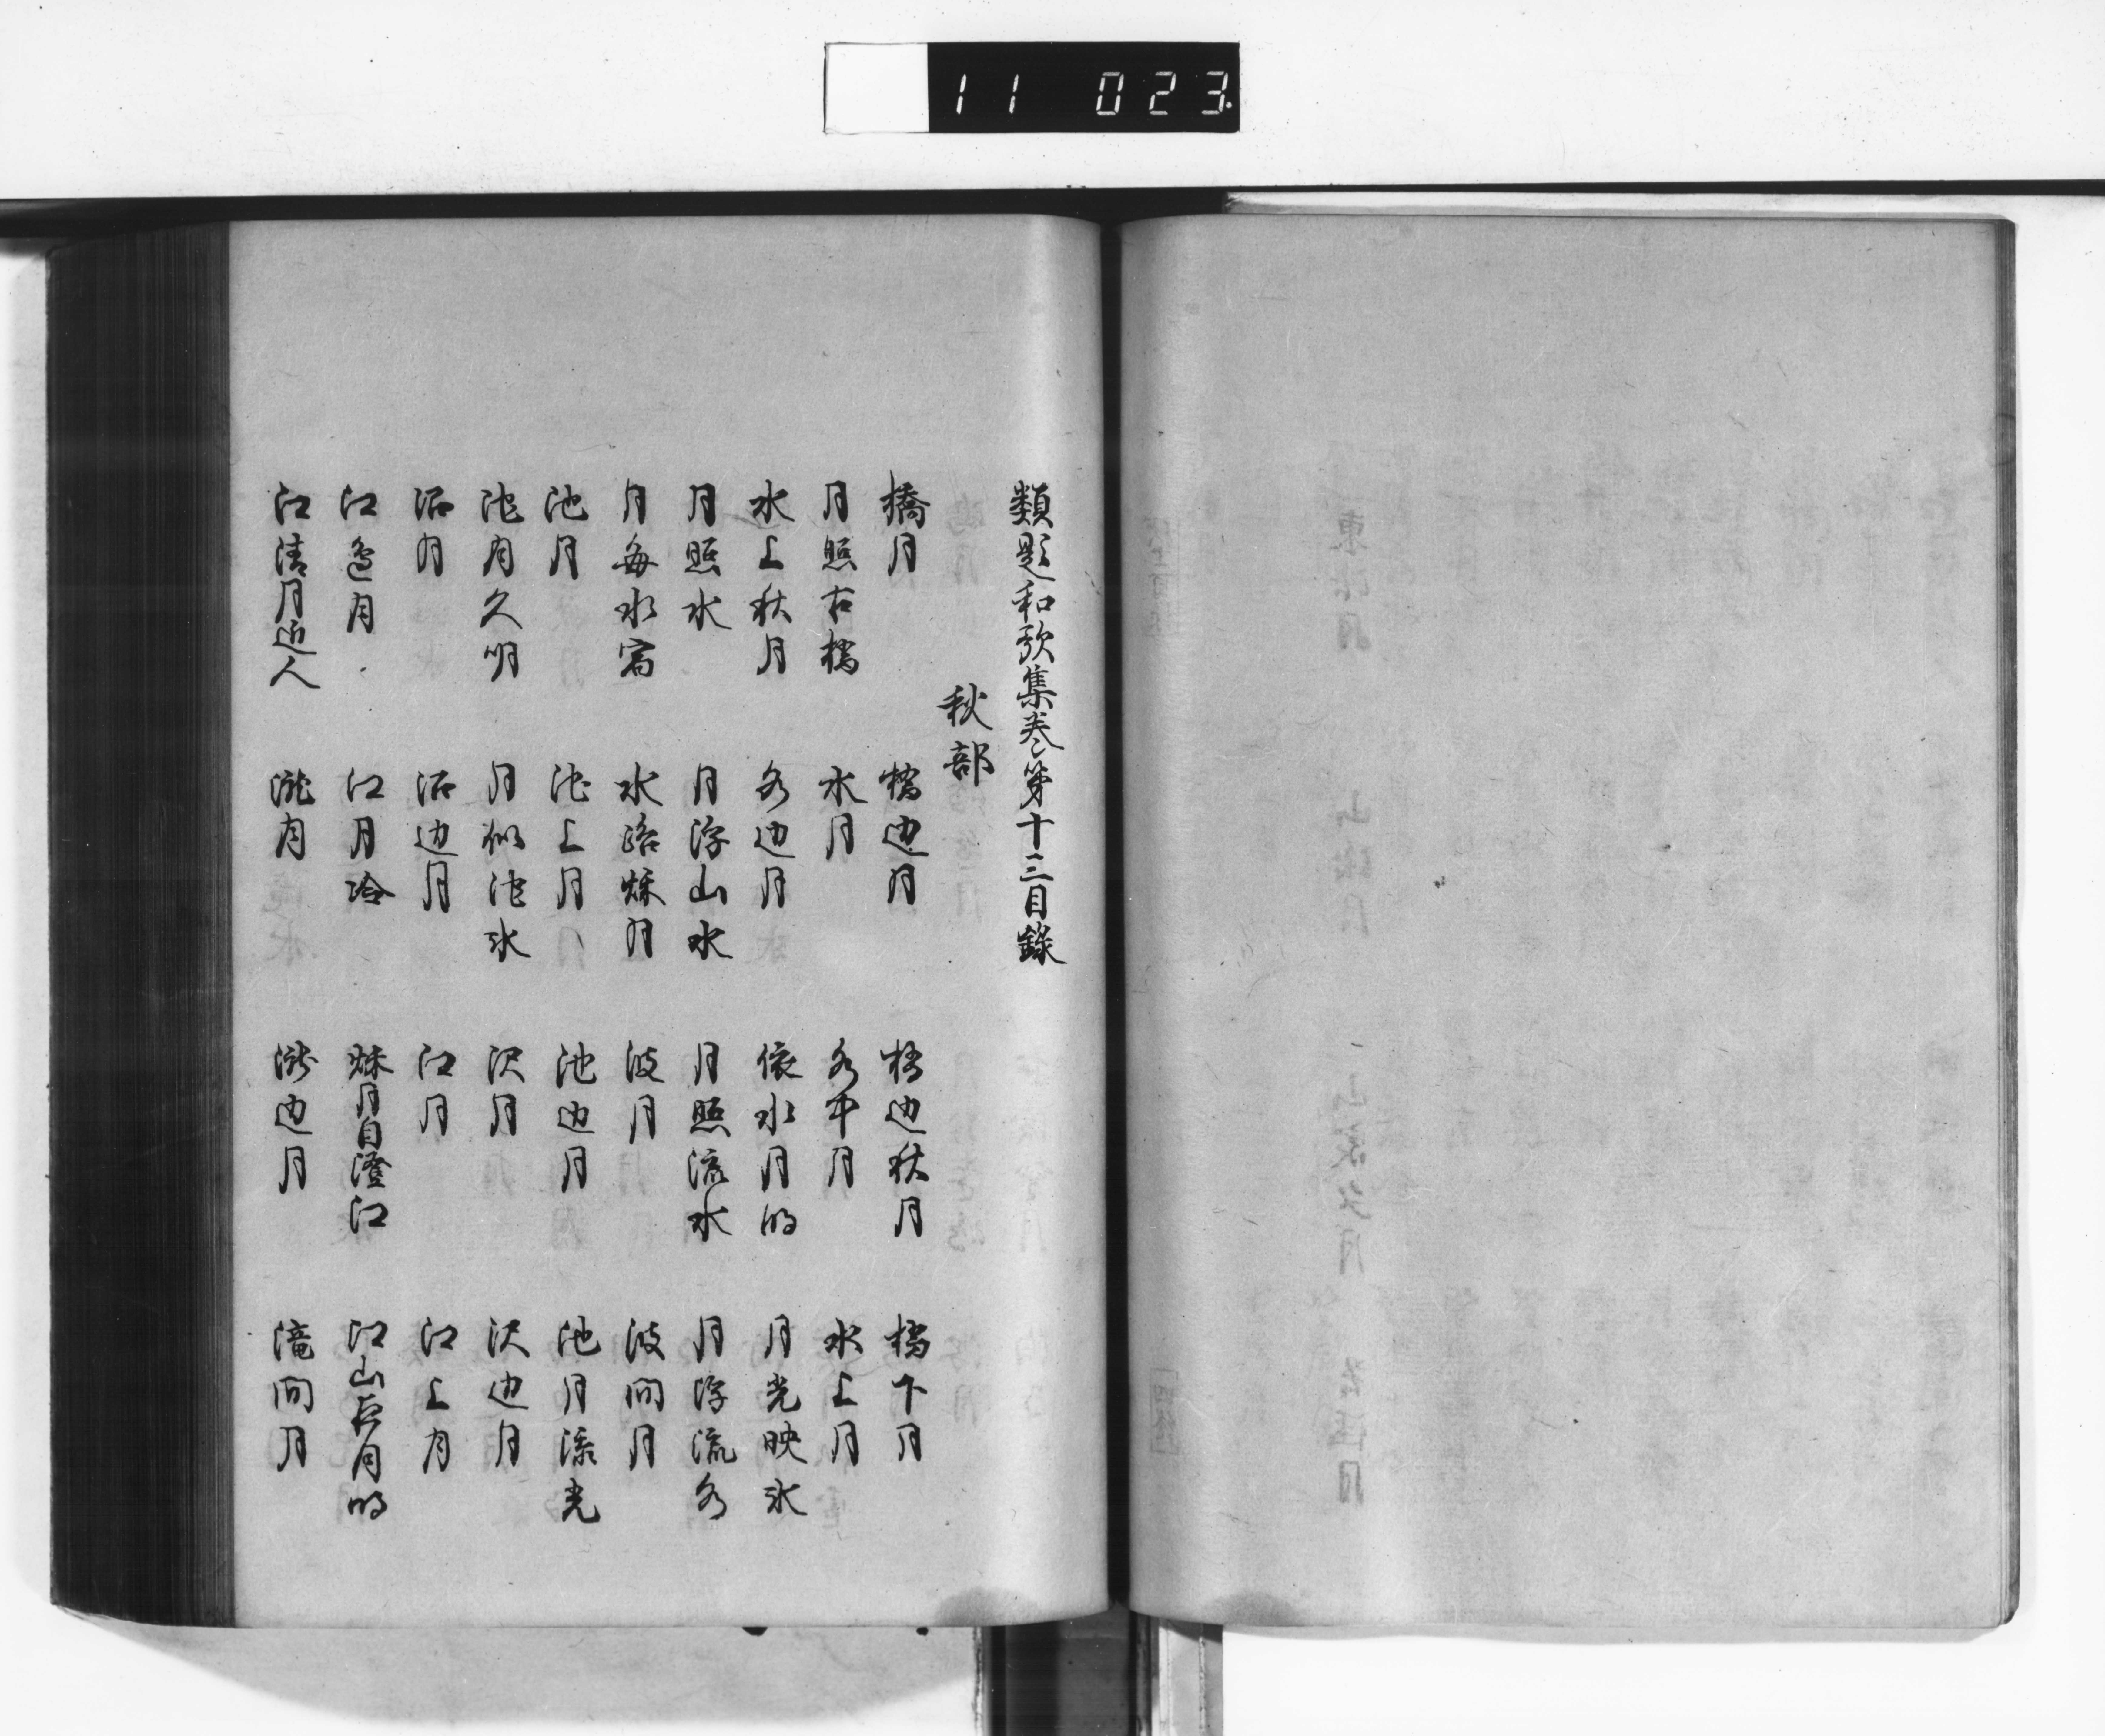 11 023
類題和歌集巻第十三目録
秋部
橋月 橋辺月 橋辺秋月 橋下月
月照古橋 水月 水中月 水上月
水上秋月 水辺月 依水月明 月光映水
月照水 月浮山水 月照流水 月浮流水
月毎水宿 水路秋月 波月 波間月
池月 池上月 池辺月 池月添光
池月久明 月似池氷 沢月 沢辺月
沼月 沼辺月 江月 江上月
江辺月 江月冷 秋月自澄江 江山長月明
江清月近人 滝月 滝辺月 滝間月